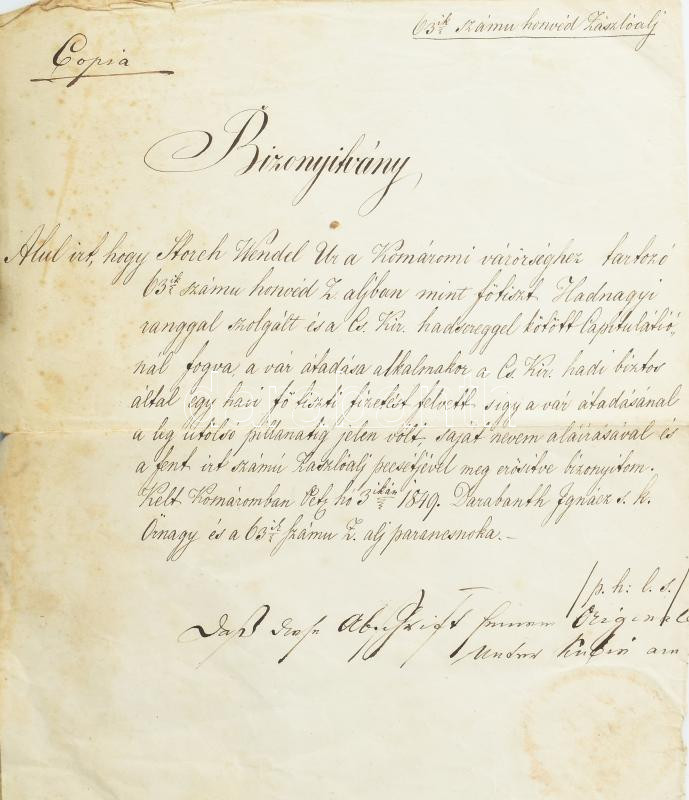 63ik számu honvéd Zászlóalj
Copia
Bizonyitvány
Alul irt, hogy Storch Wendel Ur a Komáromi várörséghez tartozó
63ik számu honvéd Z. aljban mint fötiszt Hadnagyi
ranggal szolgált és a Cs. Kir. hadsereggel kötött Capitulátió-
nál fogva, a vár átadása alkalmakor a Cs. Kir. hadi biztos
által egy havi fötiszti fizetést felvett s igy a vár átadásánál
a leg utólso pillanatig jelen volt, saját nevem aláirásával és
a fent irt számú Zászlóalj pecsétjével meg erösitve bizonyitom.
Kelt Komáromban hó 3ikán 1849. Darabanth Ignácz s. k.
Örnagy és a 63ik számu Z. alj parancsnoka.-
/p. h: l. s./
Daß diese Abschrift seinem Original
unter